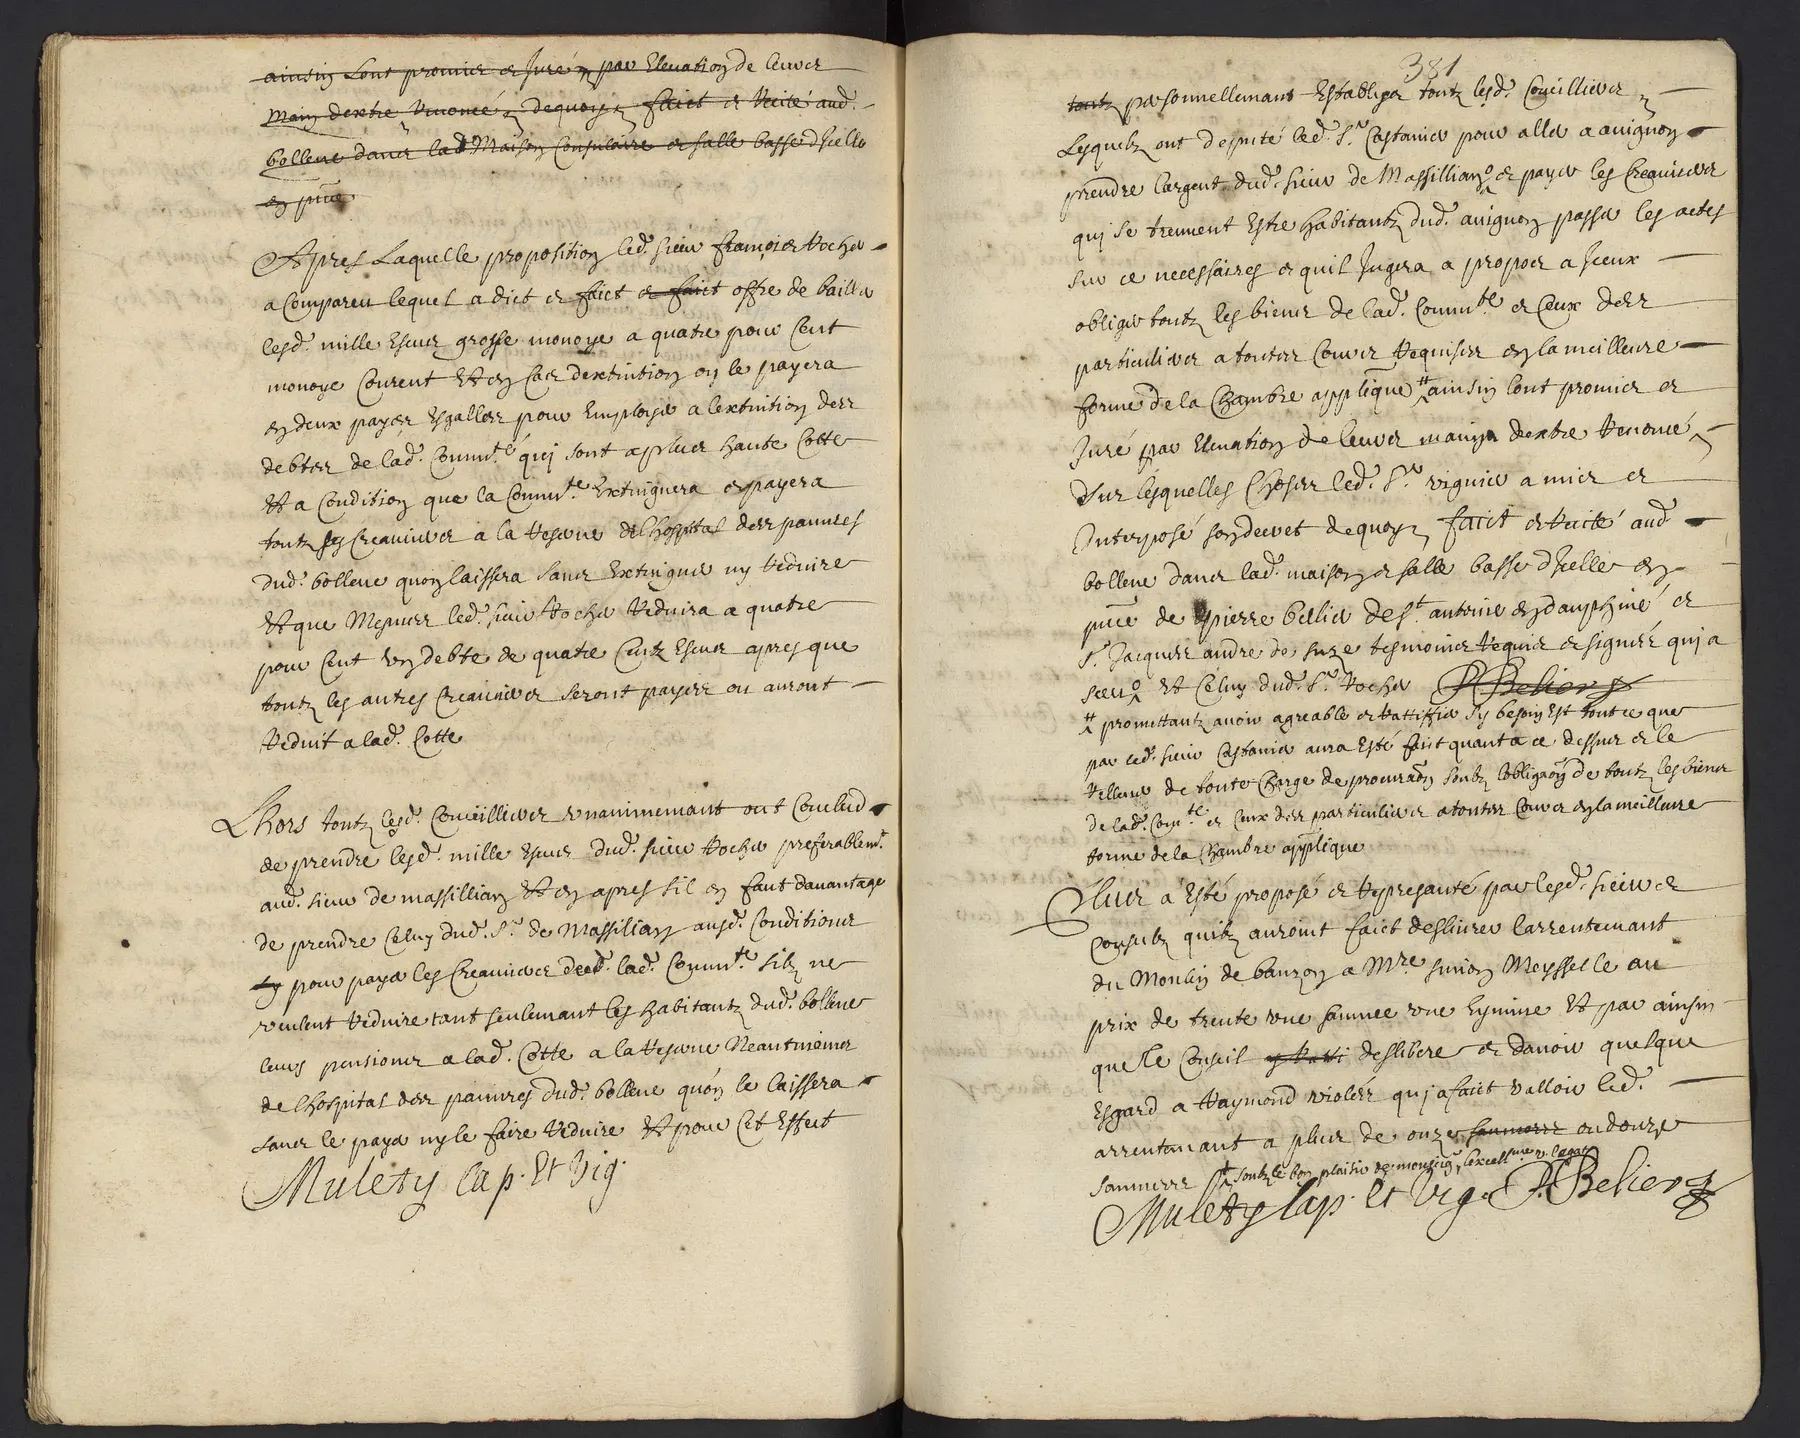 ainsin lont promis et Juré par Elevation de leurs
main dextre Renoncé dequoy faict et Recité aud.
bollene dans lad. Maison Consulaire et salle basse dicelle
en pnce
Apres Laquelle proposition led. sieur françois Rocher
a Compareu lequel a dict et faict et faict offre de bailler
lesd. mille Escus grosse monoye a quatre pour Cent
monoye Courent Et en Cas dextintion on le payera
en deux payes Esgalles pour Employer a lextintion des
debtes de lad. Commté. quj sont a plus haute Cotte
Et a Condition que la Commte. Extinguera et payera
toutz ses Creanciers a la Reserve de lhospital des pauvres
dud. bollene quon laissera sans Extinguer ny Reduire
Et que Mesmes led. sieur Rocher Reduira a quatre
pour Cent un debte de quatre Centz Escus apres que
toutz les autres Creanciers seront payes ou auront
Reduit a lad. Cotte
Lhors toutz lesd. Conseilliers unanimemant ont Conclud
de prendre lesd. mille Escus dud. sieur Rocher preferablemt.
aud. sieur de massillian Et en apres sil en faut davantage
de prendre Celuy dud. Sr. de Massilian ausd. Conditions
pour payer les Creanciers de lad. Commte. silz ne
veulent Reduire tant seulemant les habitantz dud. bollene
leurs pensions a lad. Cotte a la Reserve Neantmeins
de lhospital des pauvres dud. bollene quon le laissera
sans le payer ny le faire Reduire Et pour Cet Effect
Mulety Cap. Et Vig.
381
toutz personnellemant Establys toutz lesd. Conseilliers
Lesquelz ont deputé led. Sr. Castanier pour aller a avignon
prendre largent dud. sieur de Massillian et payer les Creanciers
quj se treuvent Estre habitantz dud. avignon passer les actes
sur ce necessaires et quil Jugera a propos a Iceux
obliger toutz les biens de lad. Commte. et Ceux des
particuliers a toutes Cours Requises en la meilleure
forme de la Chambre applique # ainsin lont promis et
Juré par Elevation de leurs mains dextre Renoncé
Sur lesquelles Choses led. Sr. viguier a mis et
Interposé son decret dequoy faict et Recité aud.
bollene dans lad. maison et salle basse dicelle en
pnce de pierre bellier de St. antoine en dauphiné et
Sr. Jacques andre de suze tesmoins Requis et signes quj a
sceu Et Celuy dud. Sr. Rocher P. Belion
# promettantz avoir agreable et Rattiffier sy besoin Est tout ce que
par led. sieur Castanier aura Esté faict quant a ce dessus et le
Relleuer de toute Charge de procuraon soubz lobligaon de toutz les biens
de lad. Comte. et Ceux des particuliers a toutes Cours en la meilleure
forme de la Chambre applique
Plus a Esté proposé et Represanté par lesd. sieurs
Consulz quilz auroint faict deslivrer larrentemant
du Moulin de bauzon a Mre. simon Meysselle au
prix de trente une saumee une Eymine Et par ainsin
que le Conseil deslibere et davoir quelque
Esgard a Raymond violés quj a faict valloir led.
arrentemant a plus de onze saumees ou douze
saumees soubz le bon plaisir de monseigr. lexcellme. v. legat
Mulety Cap. Et Vig. P. Belion